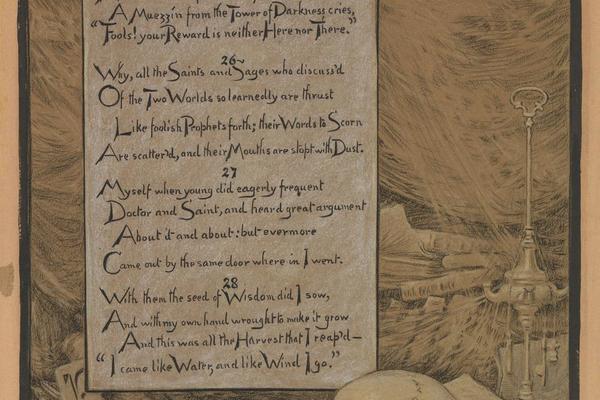 A Muezzín from the Tower of Darkness cries,
"Fools! your Reward is neither Here nor There."
26
Why, all the Saints and Sages who discuss'd
Of the Two Worlds so learnedly are thrust
Like foolish Prophets forth; their Words to Scorn
Are scatter'd, and their Mouths are stopt with Dust.
27
Myself when young did eagerly frequent
Doctor and Saint, and heard great argument
About it and about: but evermore
Came out by the same door where in I went.
28
With them the seed of Wisdom did I sow,
And with my own hand wrought to make it grow
And this was all the Harvest that I reap'd—
"I came like Water, and like Wind I go."